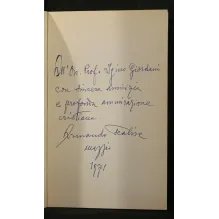 All'On. Prof. Igino Giordani
con sincera amicizia
e profonda ammirazione
cristiana
Armando
maggio
1971